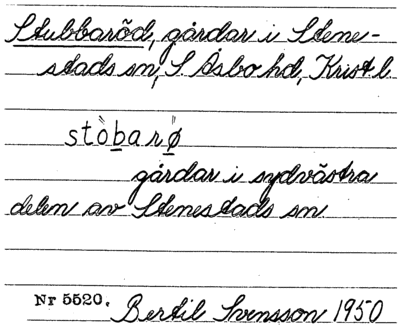 Stubbaröd, gårdar i Stene-
stads sn, S. Åsbo hd, Krist l.
stòbarø̀
gårdar i sydvästra
delen av Stenestads sn.
Nr 5520. Bertil Svensson 1950